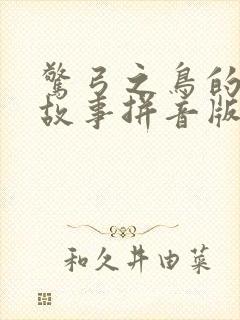 驚弓之鳥的
故事拼音版
和久井由菜